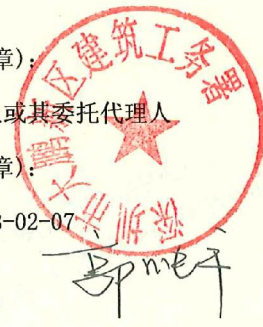 章):
或其委托代理人
章):
-02-07
深圳市大鹏新区建筑工务署